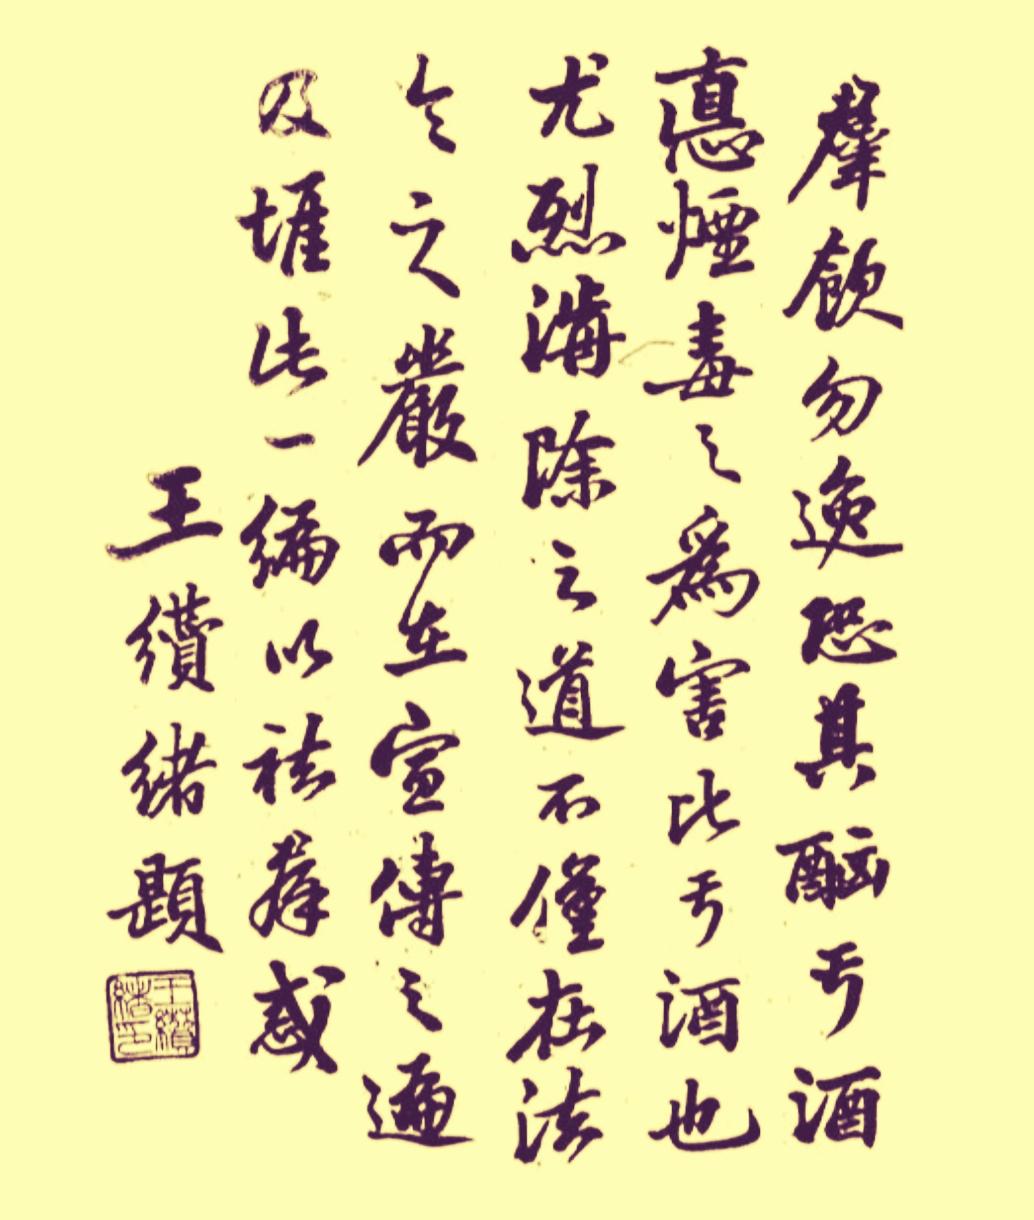 羣飲勿逸恐其酗于酒
悳煙毒之爲害比于酒也
尤烈溝除之道不僅在法
令之嚴而在宣傳之遍
及堆此一編以祛羣惑
王纘緒題
王纘緒印